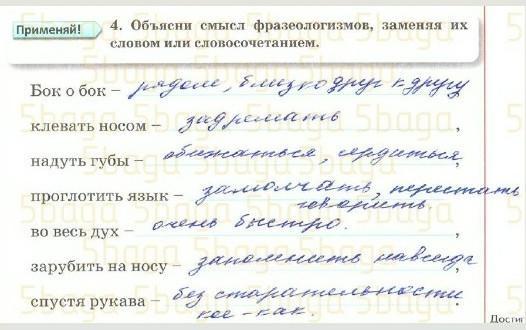 Применяй!
4. Объясни смысл фразеологизмов, заменяя их
словом или словосочетанием.
Бок о бок – рядом, близко друг к другу
клевать носом – задремать,
надуть губы – обижаться, сердиться,
проглотить язык – замолчать, перестать
говорить.
во весь дух – очень быстро.,
зарубить на носу – запомнить навсегда,
спустя рукава – без старательности.
кое-как.
Достиг
5baga